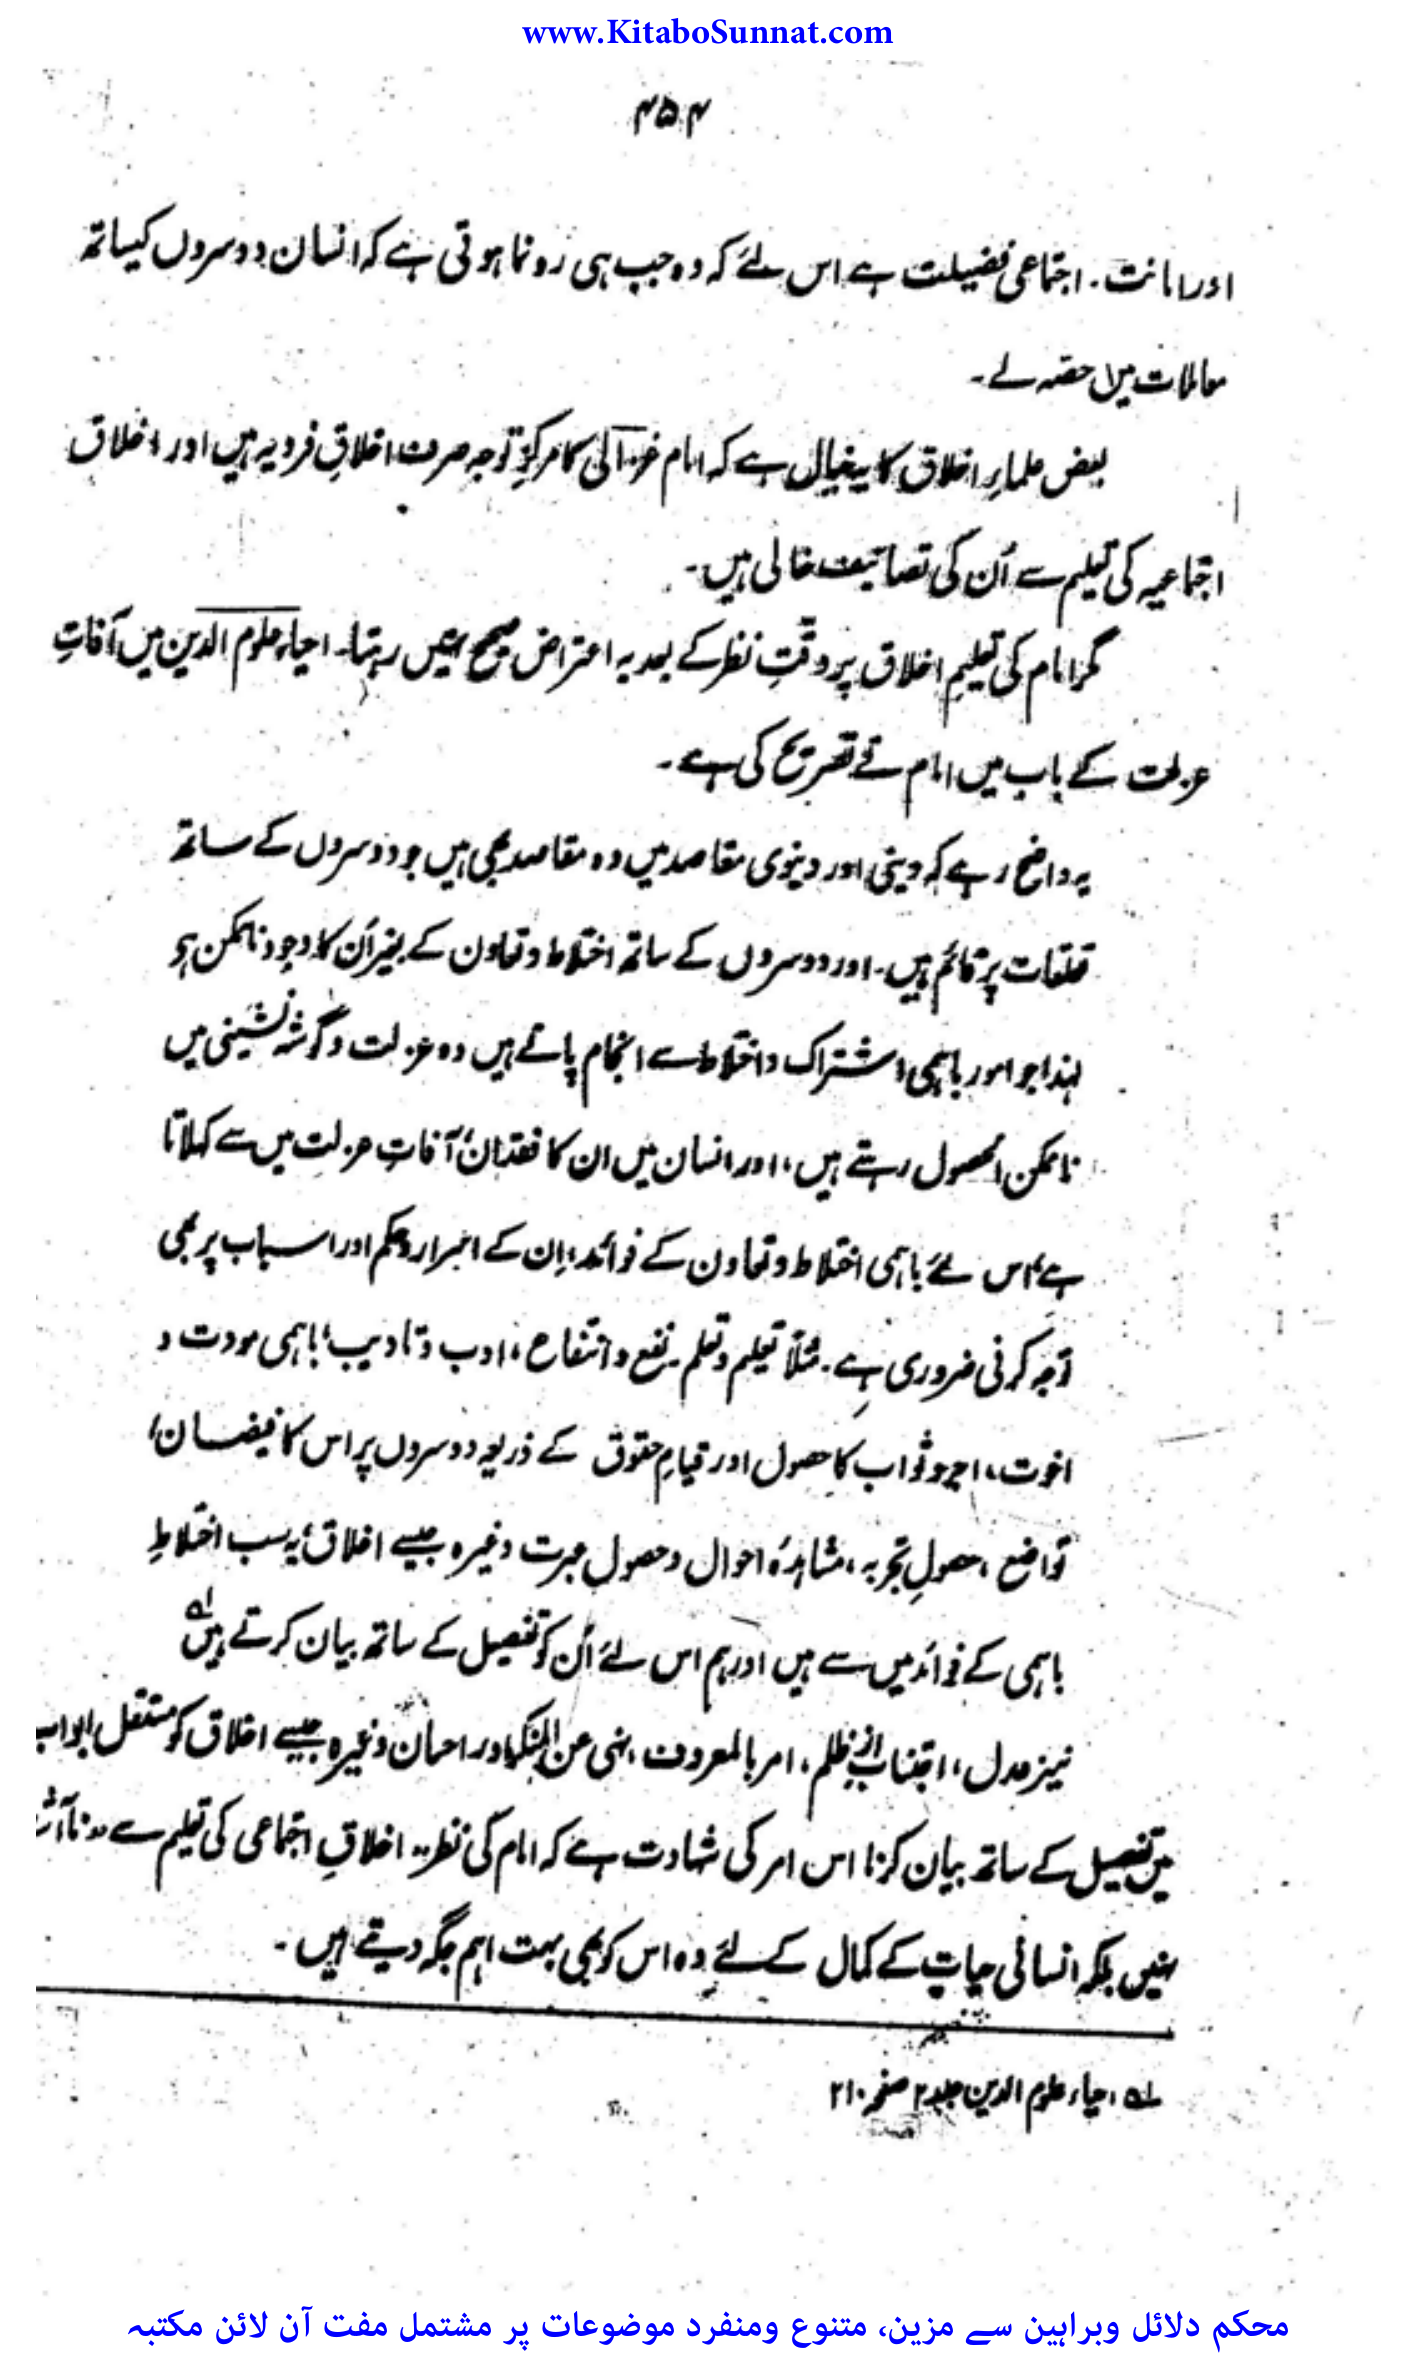 www.KitaboSunnat.com
۴۵۴
اور امانت۔ اجتماعی فضیلت ہے اس لئے کہ وہ جب ہی رونما ہوتی ہے کہ انسان دوسروں کیساتھ
معاملات میں حصہ لے۔
بعض علماءِ اخلاق کا یہ خیال ہے کہ امام غزالی کا مرکزِ توجہ صرف اخلاقِ فردیہ ہیں اور اخلاق
اجتماعیہ کی تعلیم سے اُن کی تصانیف خالی ہیں۔
مگر امام کی تعلیمِ اخلاق پر دقّتِ نظر کے بعد یہ اعتراض صحیح نہیں رہتا۔ احیاء علوم الدین میں آفاتِ
عزلت کے باب میں امام نے تصریح کی ہے۔
یہ واضح رہے کہ دینی اور دنیوی مقاصد میں وہ مقاصد بھی ہیں جو دوسروں کے ساتھ
تعلقات پر قائم ہیں۔ اور دوسروں کے ساتھ اختلاط و تعاون کے بغیر اُن کا وجود ناممکن ہے
لہٰذا جو امور باہمی اشتراک و اختلاط سے انجام پاتے ہیں وہ عزلت و گوشہ نشینی میں
ناممکن الحصول رہتے ہیں، اور انسان میں ان کا فقدان آفاتِ عزلت میں سے کہلاتا
ہے، اس لئے باہمی اختلاط و تعاون کے فوائد، اِن کے اسرار و حکم اور اسباب پر بھی
توجہ کرنی ضروری ہے۔ مثلاً تعلیم و تعلم۔ نفع و انتفاع، ادب و تادیب، باہمی مودت و
اخوت، اجر و ثواب کا حصول اور قیامِ حقوق کے ذریعہ دوسروں پر اس کا فیضان،
تواضع، حصولِ تجربہ، مشاہدۂ احوال و حصول عبرت وغیرہ جیسے اخلاق، یہ سب اختلاطِ
باہمی کے فوائد میں سے ہیں اور ہم اس لئے اُن کو تفصیل کے ساتھ بیان کرتے ہیں لہ
نیز عدل، اجتناب از ظلم، امر بالمعروف، نہی عن المنکر اور احسان وغیرہ جیسے اخلاق کو مستقل ابواب
میں تفصیل کے ساتھ بیان کرنا اس امر کی شہادت ہے کہ امام کی نظر اخلاقِ اجتماعی کی تعلیم سے
نہیں بلکہ انسانی حیات کے کمال کے لئے وہ اس کو بھی بہت اہم جگہ دیتے ہیں۔
لہ احیاء علوم الدین جلد ۲ صفحہ ۲۱۰
محکم دلائل وبراہین سے مزین، متنوع ومنفرد موضوعات پر مشتمل مفت آن لائن مکتبہ